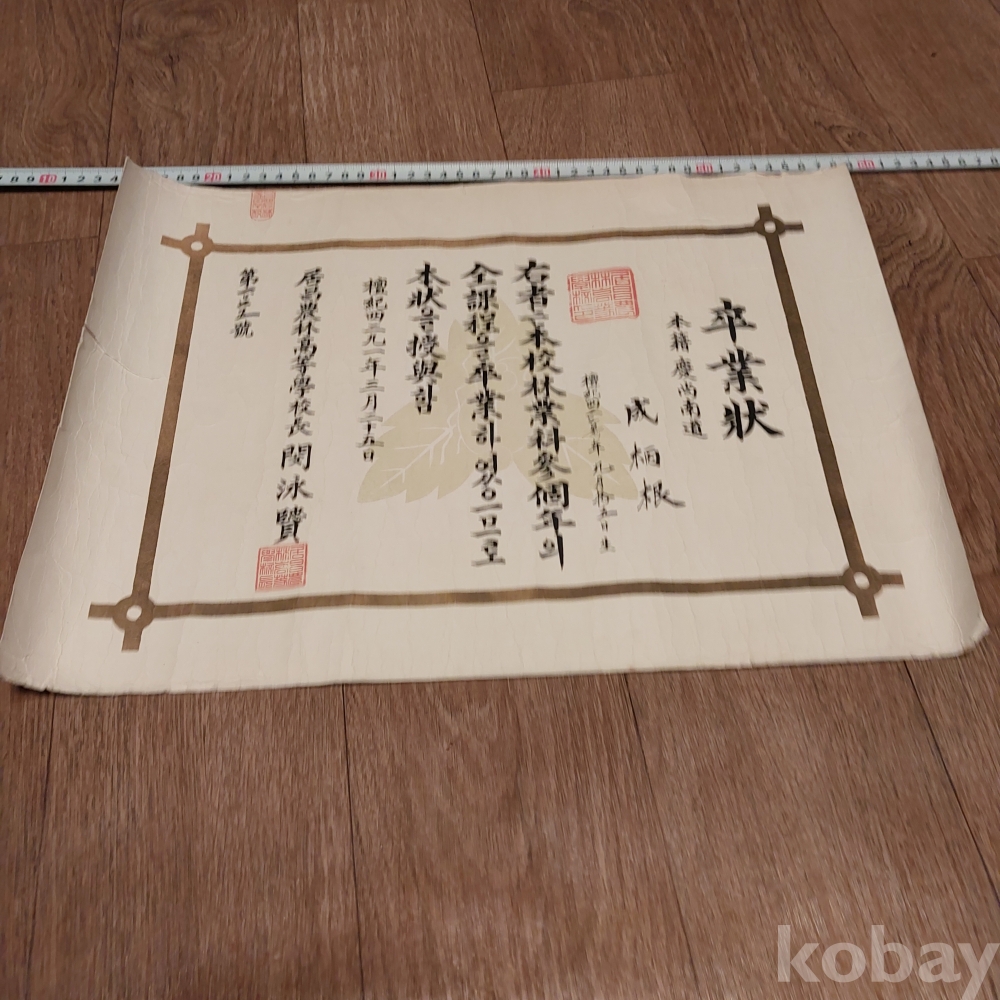 卒業狀
本籍 慶尚南道
成栢根
右者는 本校林業科參個年의
全課程을 卒業하엿으므로
本狀을 授與함
檀紀四二九一年三月二十五日
居昌農林高等學校長 閔泳贊
kobay